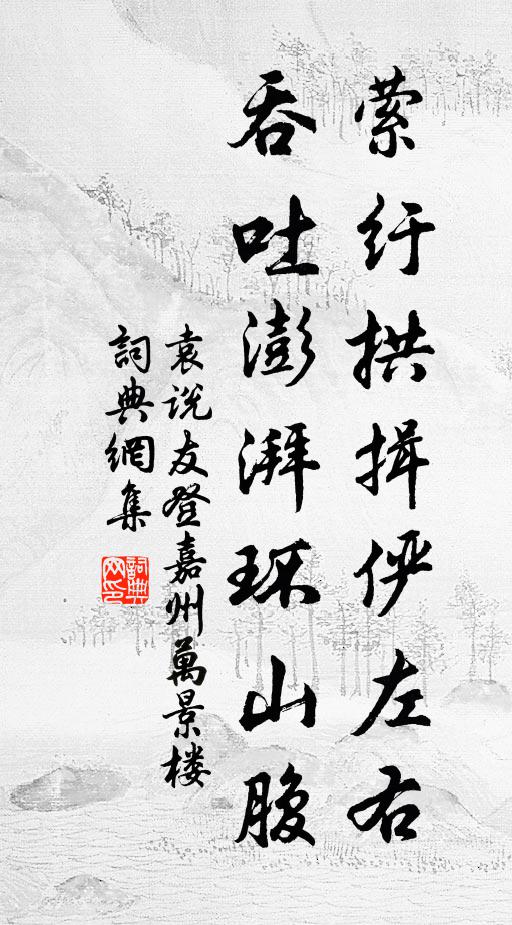 萦纡拱揖俨左右
吞吐澎湃环山腹
袁说友登嘉州萬景楼
詞典網集
詞典
网印